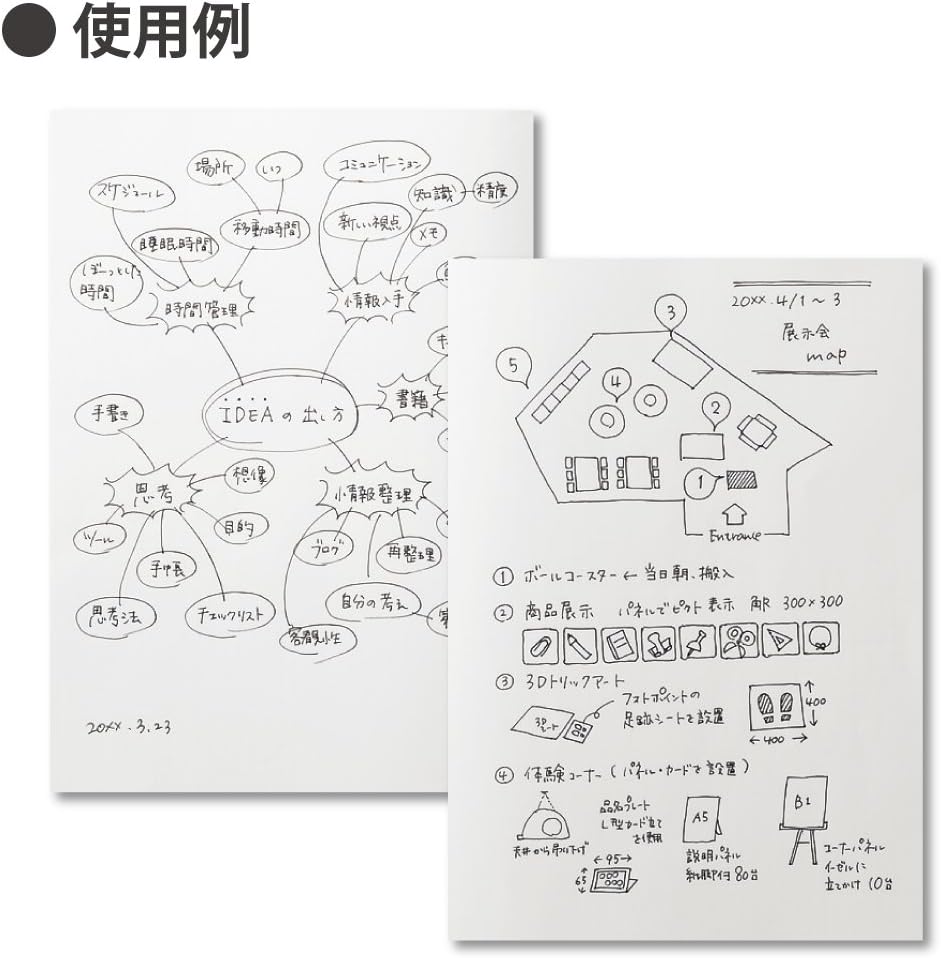 ● 使用例
場所
いつ
コミュニケーション
スケジュール
知識
精度
睡眠時間
移動時間
新しい視点
メモ
ぼーっとした
時間
時間管理
情報入手
IDEAの出し方
書籍
手書き
思考
想像
情報整理
ツール
目的
手帳
ブログ
再整理
思考法
チェックリスト
自分の考え
客観性
20XX.3.23
20XX.4/1~3
展示会
map
3
5
4
2
1
Entrance
① ボールコースター ← 当日朝、搬入
② 商品展示 パネルでピクト表示 角R 300×300
③ 3Dトリックアート
フォトポイントの
足跡シートを設置
3D
シート
400
←400→
④ 体験コーナー(パネル・カードを設置)
天井から吊り下げ
品名プレート
L型カード立て
を使用
←95→
65
A5
説明パネル
紙脚付 80台
B1
コーナーパネル
イーゼルに
立てかけ 10台